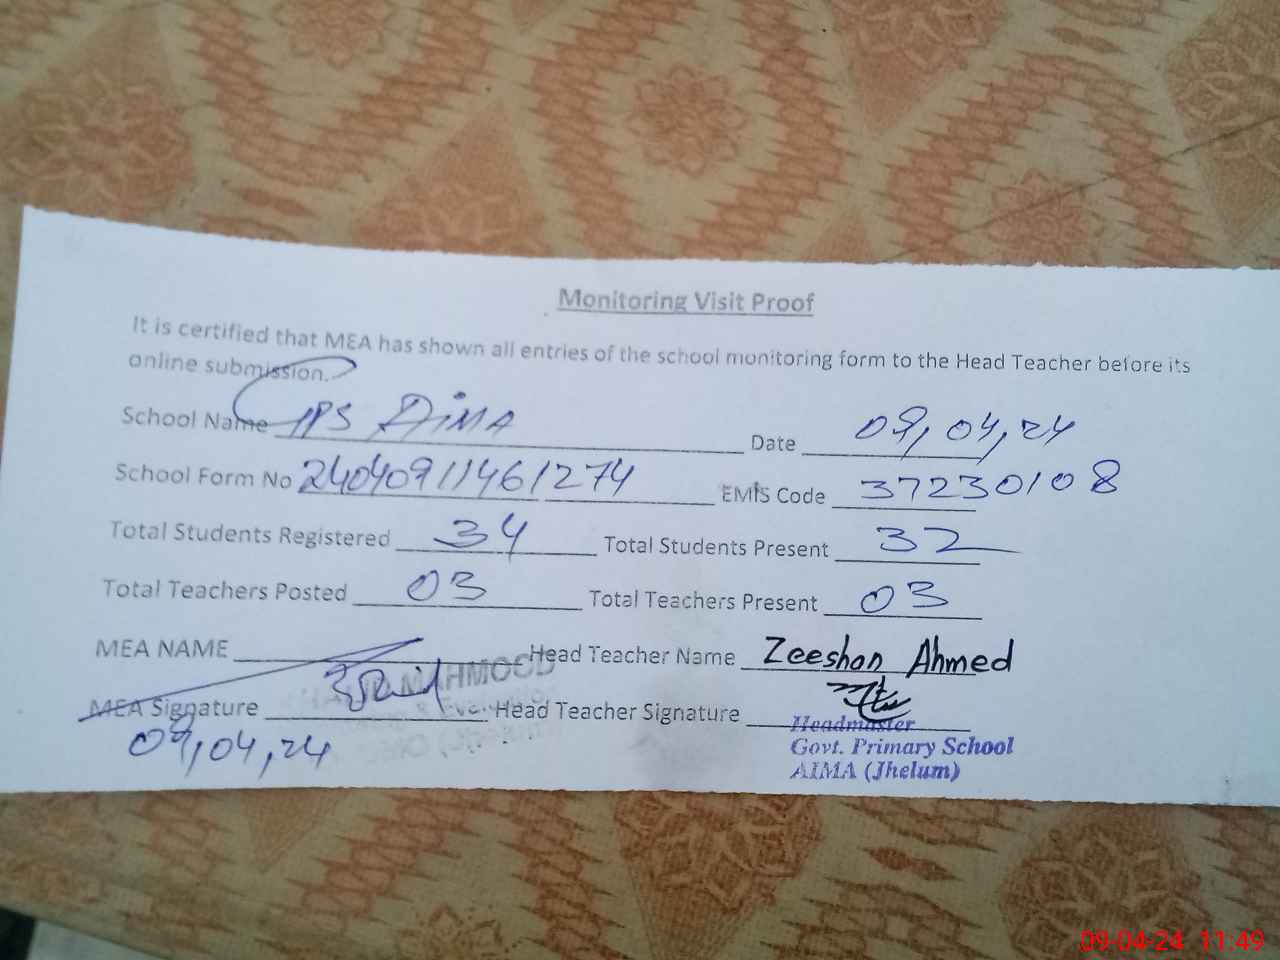 Monitoring Visit Proof
It is certified that MEA has shown all entries of the school monitoring form to the Head Teacher before its
online submission.
School Name GPS AiMA Date 09,04,24
School Form No 24040911461274 EMIS Code 37230108
Total Students Registered 34 Total Students Present 32
Total Teachers Posted 03 Total Teachers Present 03
MEA NAME Head Teacher Name Zeeshan Ahmed
MAHMOOD
MEA Signature Head Teacher Signature
09,04,24
Headmaster
Govt. Primary School
AIMA (Jhelum)
09-04-24 11:49